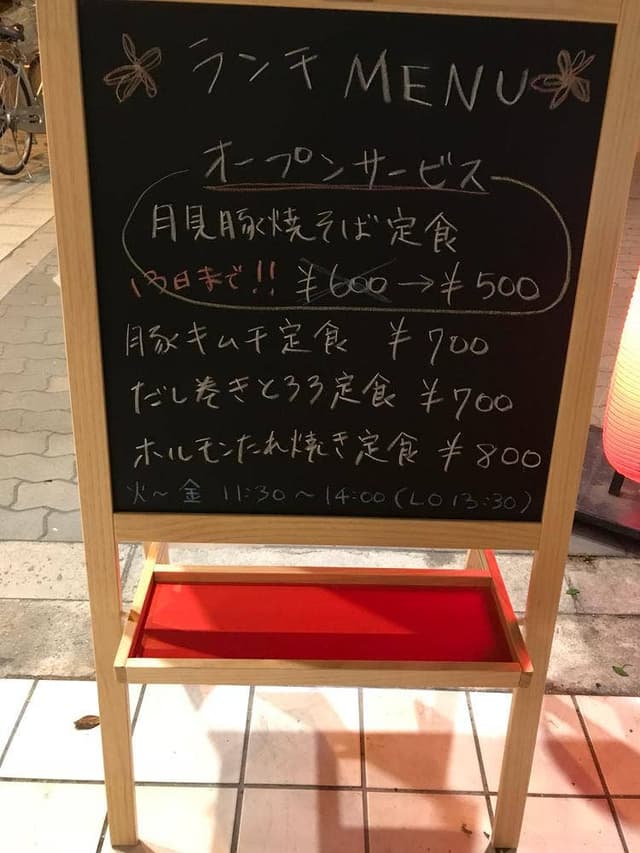 ランチ MENU
オープンサービス
月見豚焼そば定食
13日まで!! ¥600→¥500
豚キムチ定食 ¥700
だし巻きとろろ定食 ¥700
ホルモンたれ焼き定食 ¥800
火〜金 11:30〜14:00(LO 13:30)